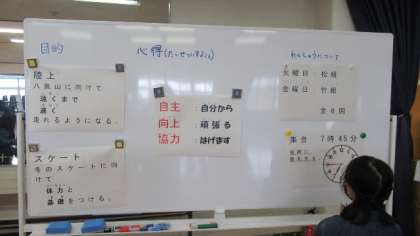 目的
陸上
八風山に向けて
遠くまで
速く
走れるようになる。
スケート
冬のスケートに向
けて
体力と
基礎をつける。
心得(たいせつにすること)
自主：自分から
向上：頑張る
協力：はげます
れんしゅうについて
火曜日：松組
金曜日：竹組
全8回
集合 7時45分